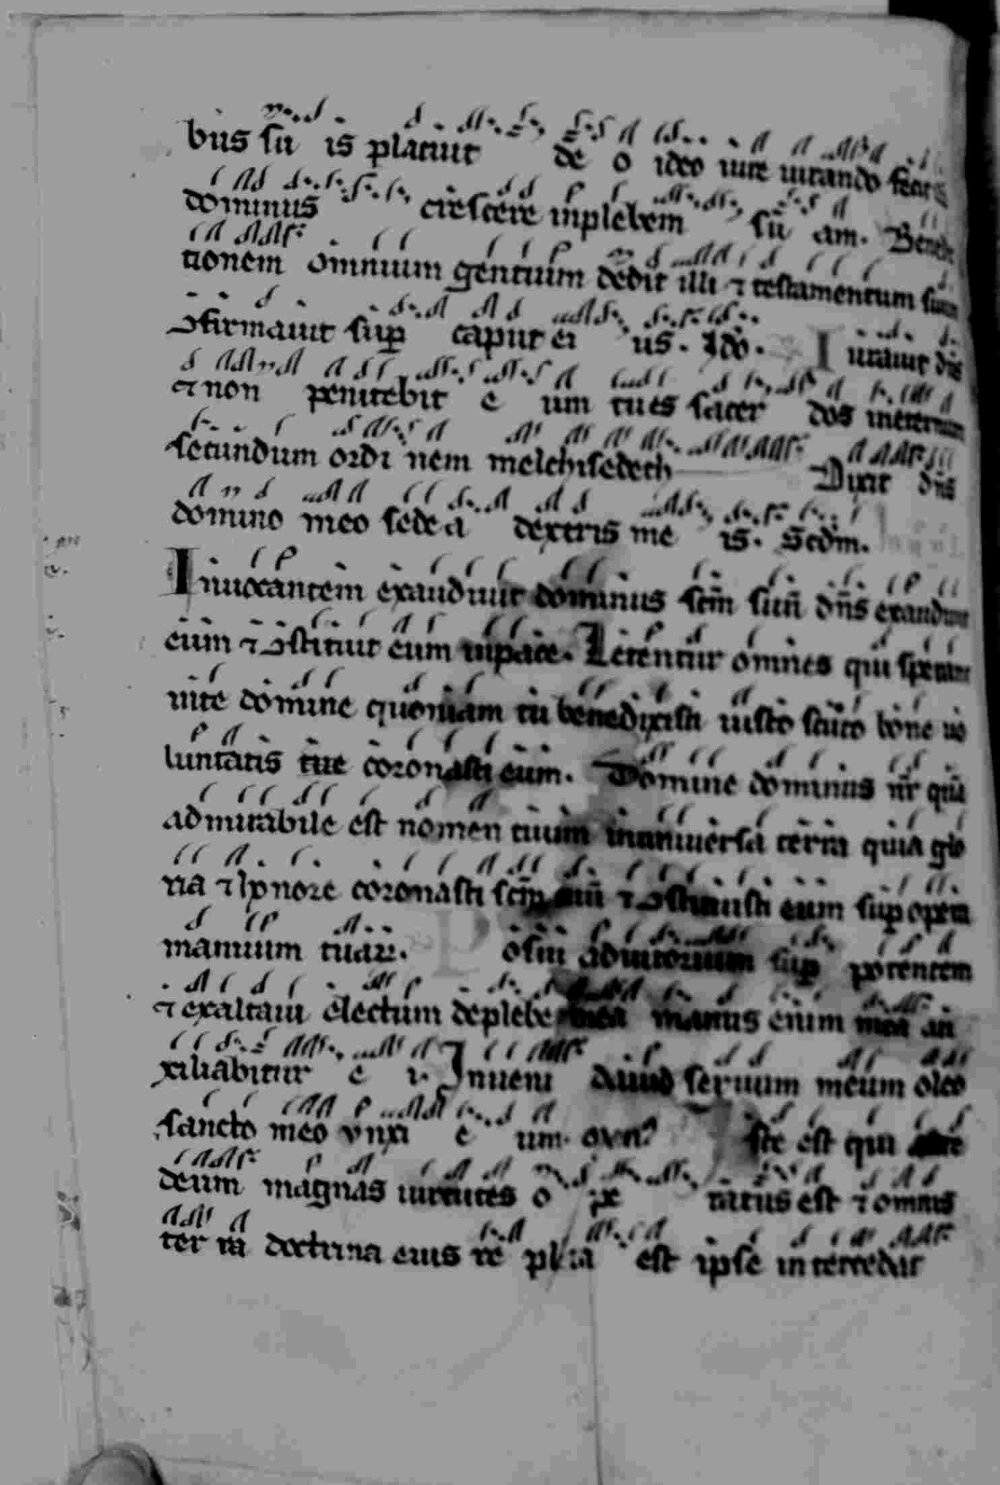 bus su is placuit de o ideo iure iurando fecit
dominus crescere inplebem su am. Bene dic
tionem omnium gentium dedit illi ⁊ testamentum suum
ↄfirmauit sup caput ei us. Ido. Iurauit dn̄s
⁊ non penitebit e um tu es sacer dos ineternum
secundum ordi nem melchisedech Dixit dn̄s
domino meo sede a dextris me is. Scdm.
Inuocantem exaudiuit dominus scm̄ suū dn̄s exaudiuit
eum ⁊ ↄstituit eum inpace. Letentur omnes qui sperant
inte domine quoniam tu benedixisti iusto scuto bone uo
luntatis tue coronasti eum. Domine dominus nr̄ quā
admirabile est nomen tuum inuniuersa terra quia glo
ria ⁊ honore coronasti scm̄ tuū ⁊ ↄstituisti eum sup opera
manuum tuaꝝ. osui adiutorium sup potentem
⁊ exaltaui electum deplebe mea manus enim mea au
xiliabitur e i. Inueni dauid seruum meum oleo
sancto meo vnxi e um. ste est qui ante
deum magnas uirtutes o pe ratus est ⁊ omnis
ter ra doctrina eius re pleta est ipse intercedat